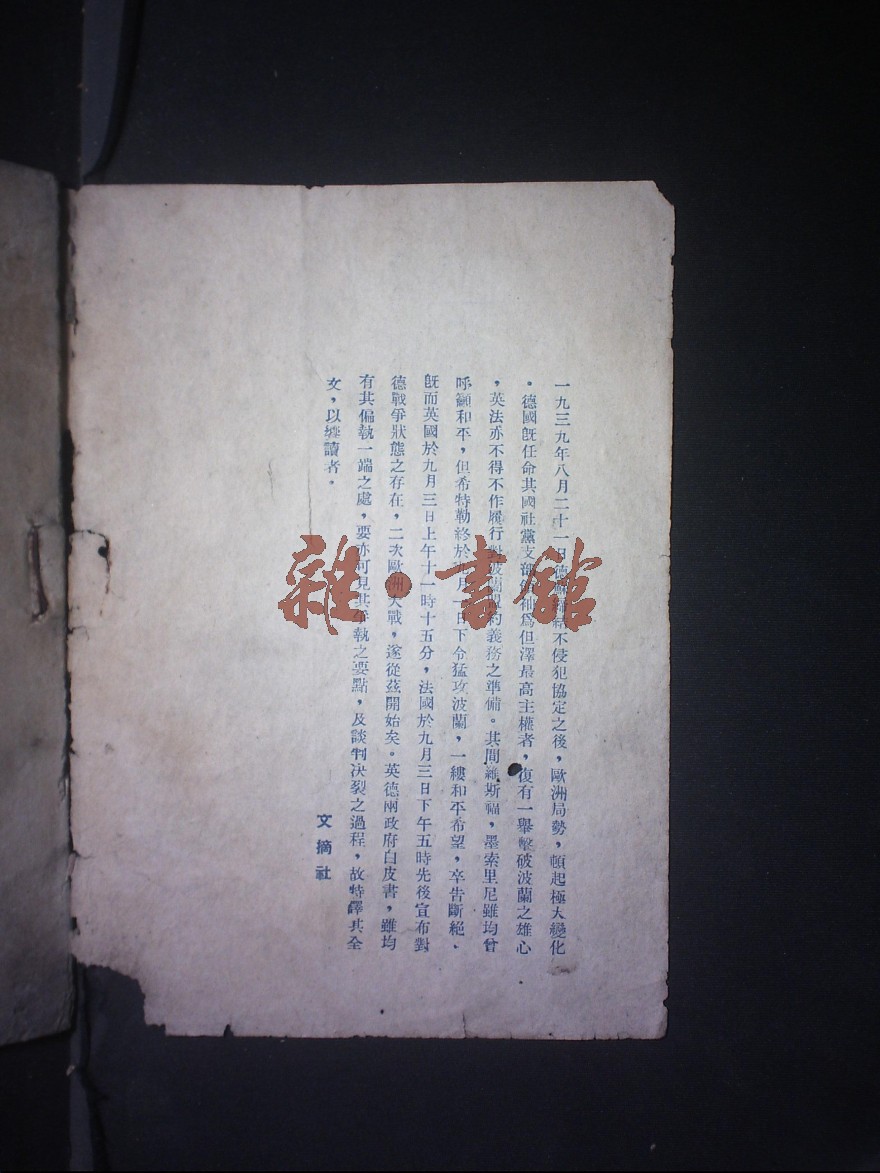 一九三九年八月二十一日德蘇締結不侵犯協定之後，歐洲局勢，頓起極大變化
。德國既任命其國社黨支部領袖為但澤最高主權者，復有一舉擊破波蘭之雄心
，英法亦不得不作履行對波蘭盟約義務之準備。其間羅斯福，墨索里尼雖均曾
呼籲和平，但希特勒終於九月一日下令猛攻波蘭，一縷和平希望，卒告斷絕、
既而英國於九月三日上午十一時十五分，法國於九月三日下午五時先後宣布對
德戰爭狀態之存在，二次歐洲大戰，遂從茲開始矣。英德兩政府白皮書，雖均
有其偏執一端之處，要亦可見其爭執之要點，及談判决裂之過程，故特譯其全
文，以饗讀者。
文摘社
雜·書館